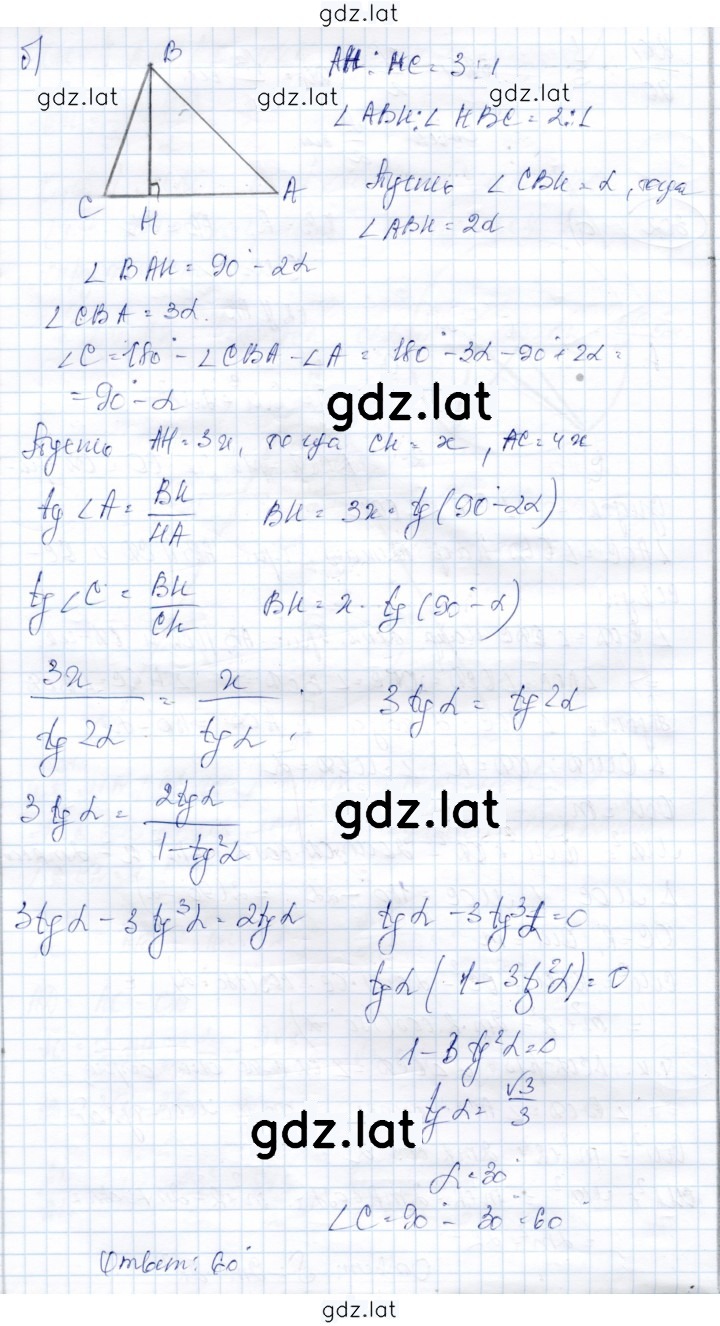 gdz.lat
б)
B
AH : HC = 3:1
gdz.lat gdz.lat gdz.lat
∠ABH:∠HBC = 2:1
Пусть ∠CBH = α, тогда
C H A
∠ABH = 2α
∠BAH = 90° - 2α
∠CBA = 3α.
∠C = 180° - ∠CBA - ∠A = 180° - 3α - 90° + 2α =
= 90° - α
gdz.lat
Пусть AH = 3x, тогда CH = x, AC = 4x
tg∠A = BH/HA BH = 3x · tg(90° - 2α)
tg∠C = BH/CH BH = x · tg(90° - α)
3x/tg2α = x/tgα. 3tgα = tg2α
3tgα = 2tgα/1-tg²α
gdz.lat
3tgα - 3tg³α = 2tgα tgα - 3tg³α = 0
tgα(1 - 3tg²α) = 0
1 - 3tg²α = 0
gdz.lat
tgα = √3/3
α = 30°
∠C = 90° - 30° = 60°
Ответ: 60°
gdz.lat